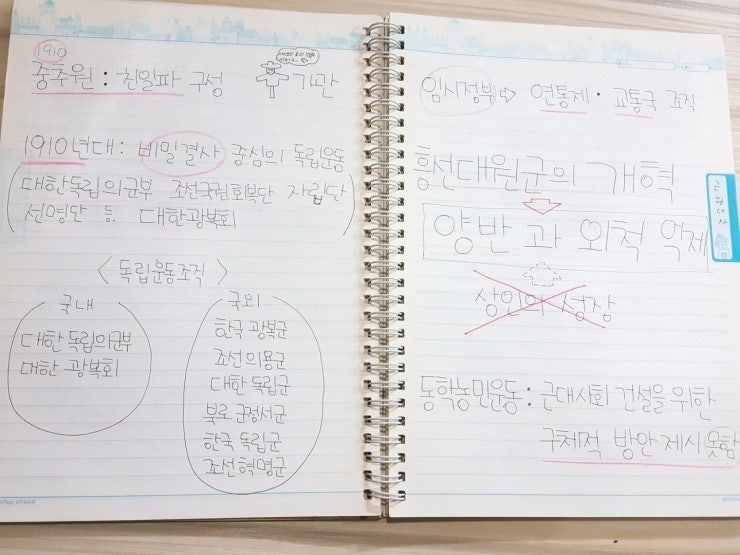 1910
중추원 : 친일파 구성 기관
1910년대 : 비밀결사 중심의 독립운동
(대한독립의군부 조선국권회복단 자립단
선명단 등 대한광복회)
<독립운동조직>
국내
대한독립의군부
대한 광복회
국외
한국 광복군
조선의용군
대한 독립군
북로 군정서군
한국 독립군
조선혁명군
step ahead
임시정부 ⇨ 연통제 · 교통국 조직
흥선대원군의 개혁
양반과 외척 억제
상인의 성장
동학농민운동 : 근대사회 건설을 위한
구체적 방안 제시 못함
근현대사